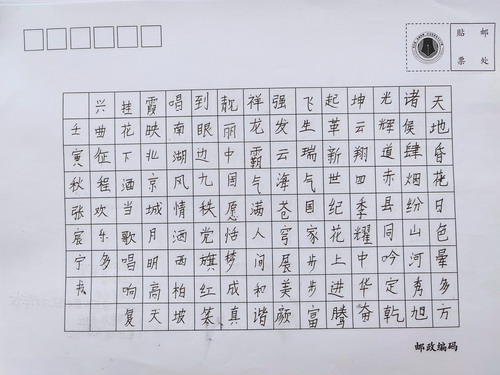 邮政编码
贴邮
票处
天地昏花日色晕多方
诸侯肆烟纷山河秀旭
光辉道赤县同吟定乾
坤云翔四季耀中华奋
起革新世纪花上进腾
飞生瑞气国家步步富
强发云海苍穹展美颜
祥龙霸气满人间和谐
靓丽中国愿恬梦成真
到眼边九秩党旗红
唱南湖风情洒西柏坡
霞映北京城月明高天
挂花下酒当歌唱响复
兴曲征程欢乐多
壬寅秋张宸宁书